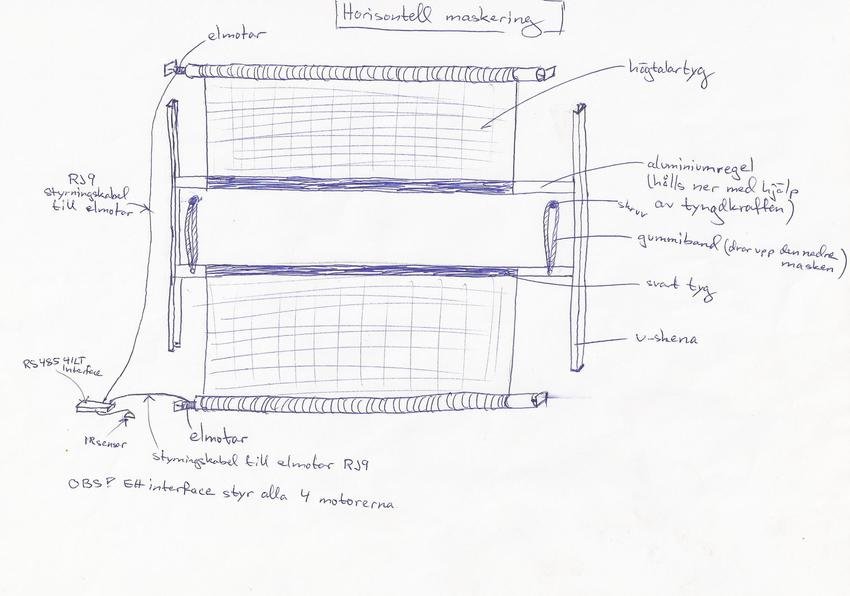 Horisontell maskering
elmotor
högtalartyg
RJ9
styrningskabel
till elmotor
aluminiumregel
(hålls ner med hjälp
av tyngdkraften)
skruv
gummiband (drar upp den nedre
masken)
svart tyg
v-skena
RS485 4ILT
Interface
IR sensor
elmotor
styrningskabel till elmotor RJ9
OBS! Ett interface styr alla 4 motorerna